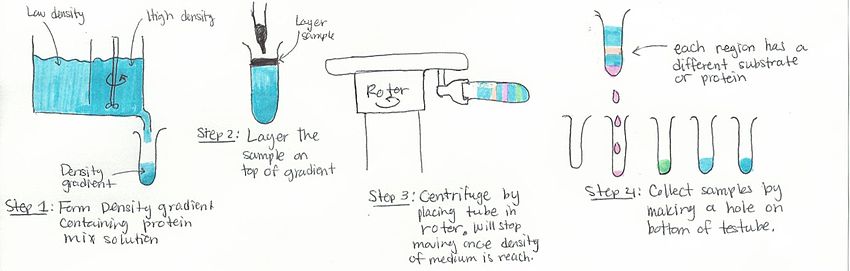 Low density
High density
Density
gradient
Step 1: Form Density gradient
containing protein
mix solution
Layer
sample
Step 2: Layer the
sample on
top of gradient
Rotor
Step 3: Centrifuge by
placing tube in
rotor. Will stop
moving once density
of medium is reach.
each region has a
different substrate
or protein
Step 4: Collect samples by
making a hole on
bottom of testube.